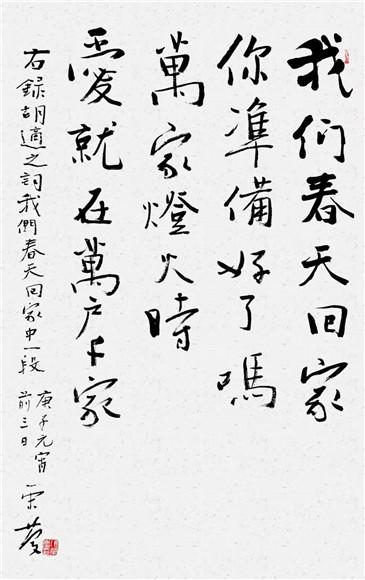 我们春天回家
你準備好了嗎
萬家燈火時
愛就在萬户千家
右録胡適之詞我們春天回家中一段
庚子元宵
前三日